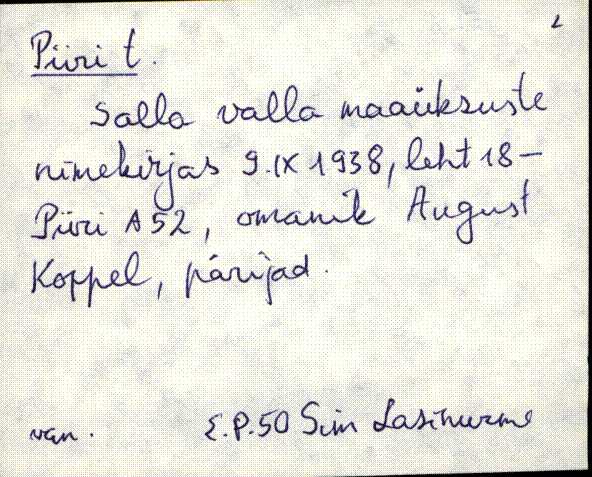 Piiri t.
Salla valla maaüksuste
nimekirjas 9.IX 1938, leht 18-
Piiri A52, omanik August
Koppel, pärijad.
van. E.P.50 Sim Lasinurme